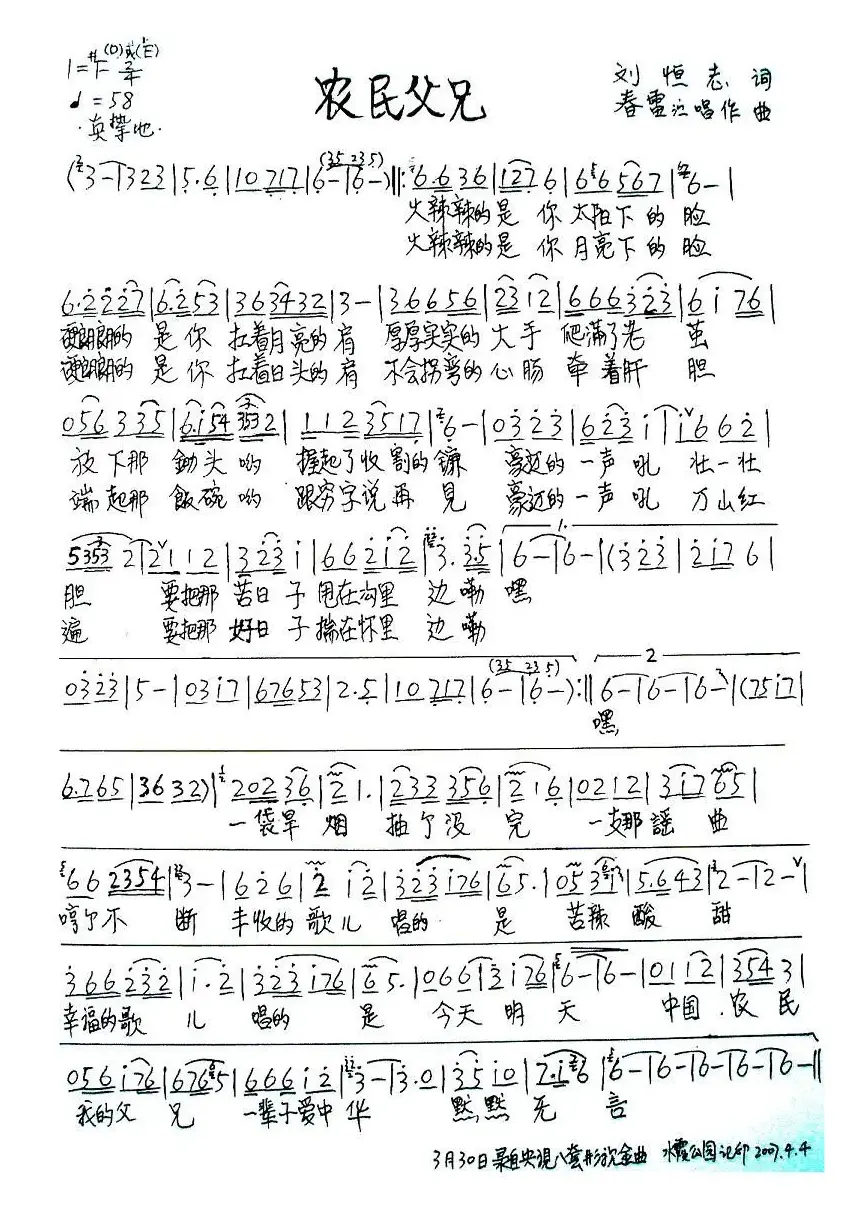 1=#F 2/4 (D)或(E)
♩=58
农民父兄
刘恒志 词
春雷 泣唱作曲
(35 23 5)
(3-|323|5·6|10 717|6-|6-)‖:6·6 36|127 6|66 567|6-|
火辣辣的是 你 太阳下的 脸
火辣辣的是 你 月亮下的 脸
6·2 227|6·253|363432|3-|36656|23 12|666323|6i 76|
硬朗朗的 是你 扛着月亮的肩 厚厚实实的 大手 爬满了老 茧
硬朗朗的 是你 扛着日头的肩 不会拐弯的 心肠 牵着肝 胆
056 3 35|6·i54 3532|112 3517|6-|03 23|623 i|i 6 62|
放下那 锄头哟 握起了收割的镰 豪迈的一声吼 壮一壮
端起那 飯碗哟 跟穷字说再見 豪迈的一声吼 万山红
1.
5353 2|2 1 12|323 i|66 2i2|3·35|6-|6-|(323|2i7 6|
胆 要把那 苦日子 甩在沟里 边嘞 嘿
遍 要把那 好日子 揣在怀里 边嘞
(35 23 5) 2
0323|5-|03i7|67653|2·5|10 717|6-|6-):‖6-|6-|6-|(75i7|
嘿
6·765|3632)|202 36|2 1·|233 356|2 16|0212|3i7 65|
一袋旱 烟 抽了没 完 一支那謡 曲
66 2354|3-|626|2 i2|323 i76|65·|05 3|5·643|2-|2-|
哼个不 断 丰收的歌儿 唱的 是 苦辣酸 甜
366 232|i·2|323 i76|65·|066|3 i76|6-|6-|01 i2|354 3|
幸福的歌 儿 唱的 是 今天 明 天 中国 农民
056 i76|676 5|666 i2|3-|3·0|35 i0|7·i 6|6-|6-|6-|6-|6-‖
我的父 兄 一辈子爱中 华 默默 无 言
3月30日 录自央視八套形歌金曲 水霞公园记印 2007.4.4